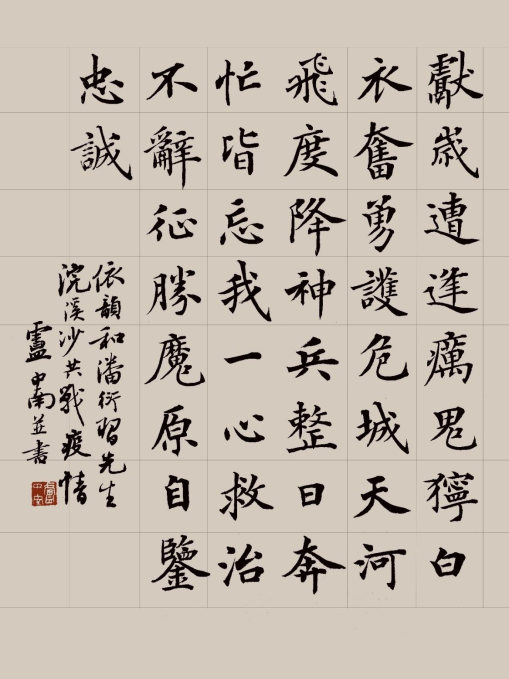 獻歲遭逢癘鬼獰白
衣奮勇護危城天河
飛度降神兵整日奔
忙皆忘我一心救治
不辭征勝魔原自鑒
忠誠
依韻和潘衍習先生
浣溪沙共戰疫情
盧中南並書